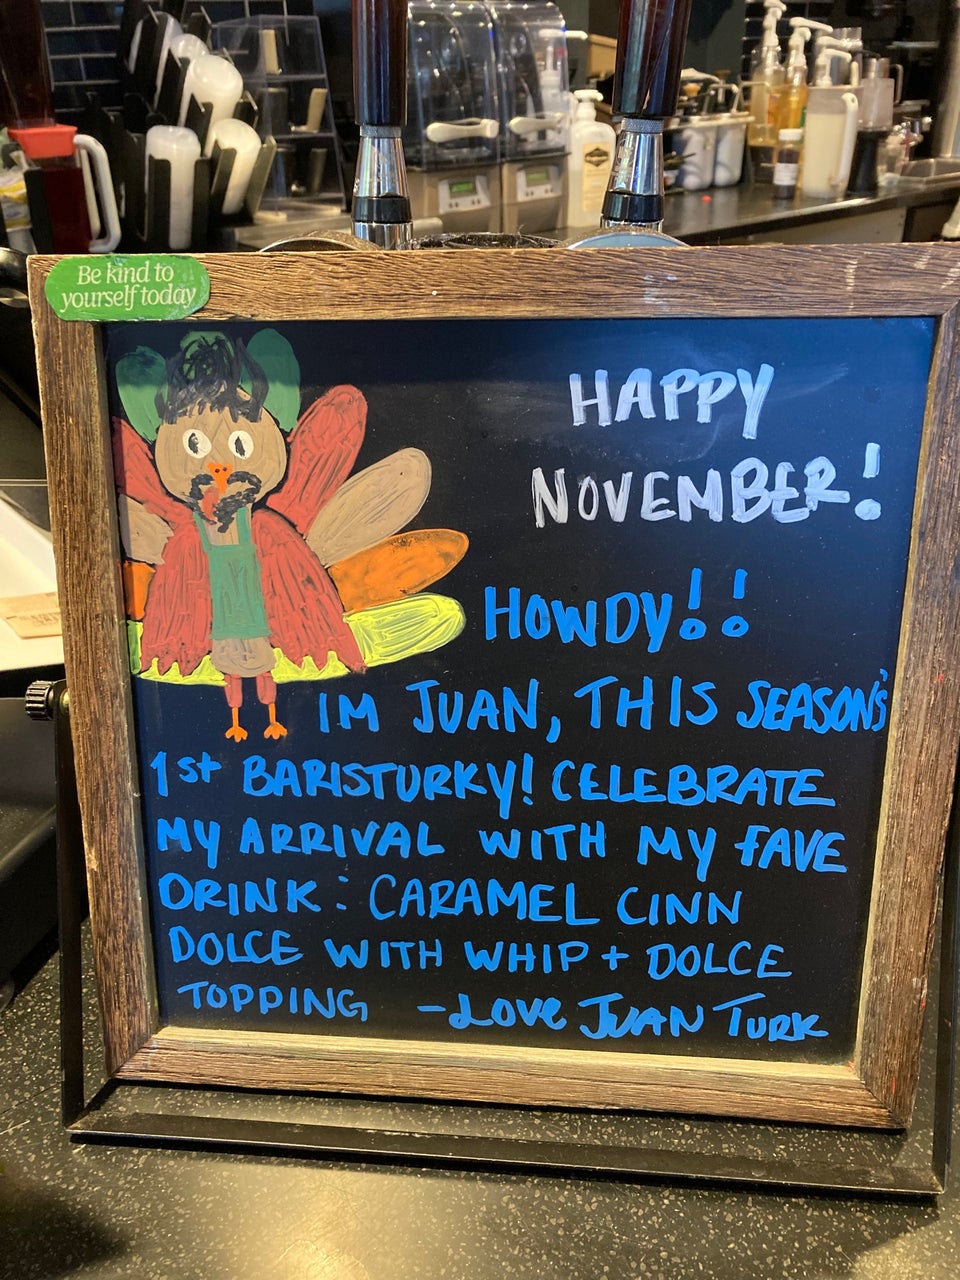 Be kind to
yourself today
HAPPY
NOVEMBER!
HOWDY!!
IM JUAN, THIS SEASON'S
1st BARISTURKY! CELEBRATE
MY ARRIVAL WITH MY FAVE
DRINK: CARAMEL CINN
DOLCE WITH WHIP + DOLCE
TOPPING -LOVE JUAN TURK